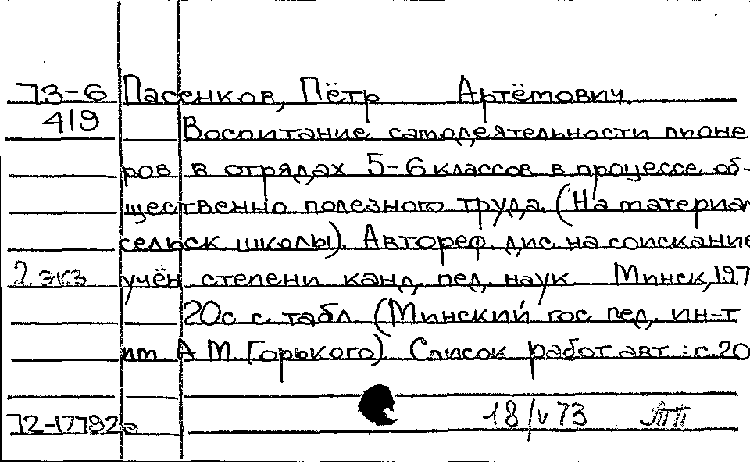 73-6 Пасенков, Пётр Артёмович
419 Воспитание самодеятельности пионе
ров в отрядах 5-6 классов в процессе об-
щественно полезного труда. (На материал
сельск школы). Автореф. дис. на соискание
2 экз учён степени канд. пед. наук Минск, 197
20с с табл (Минский гос пед. ин-т
им А М Горького). Список работ авт: с.20
72-17792
18/V 73